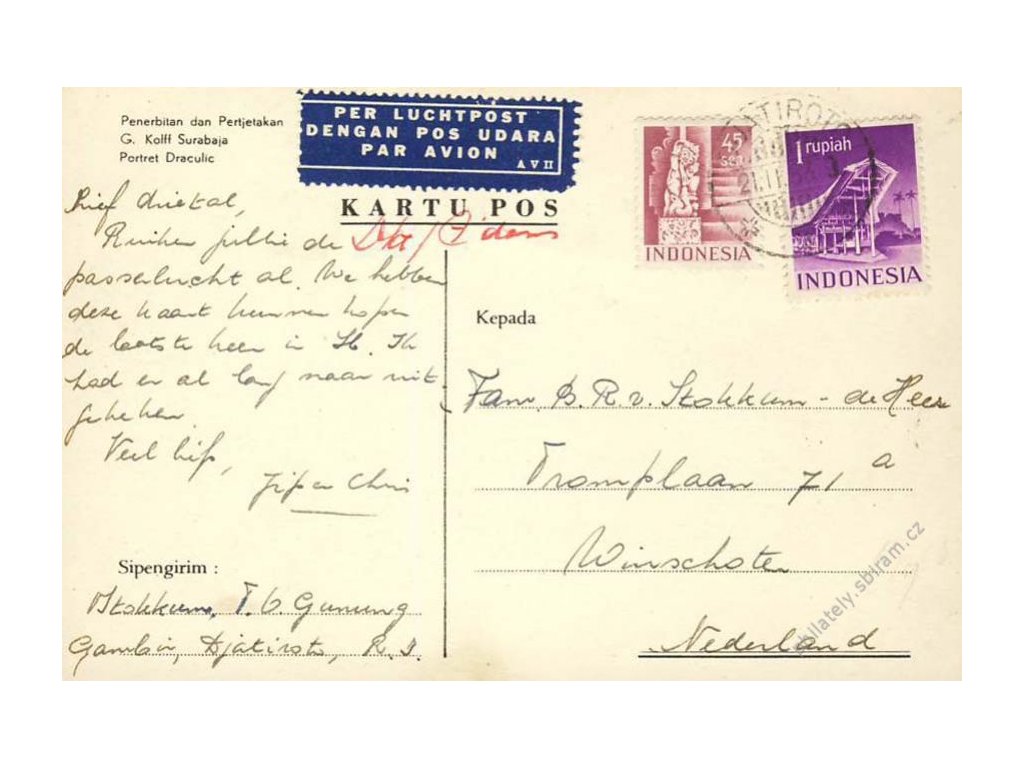 Penerbitan dan Pertjetakan
G. Kolff Surabaja
Portret Draculic
PER LUCHTPOST
DENGAN POS UDARA
PAR AVION
A V II
KARTU POS
45
SEN
INDONESIA
1 rupiah
INDONESIA
TIROTO
21.11.
Lief drietal,
Ruiken jullie de
passarlucht al. We hebben
deze kaart kunnen kopen
de laatste keer in . Ik
had er al lang naar uit
gekeken.
Veel liefs,
Jip en Chris
Kepada
Fam. B. R. v. Stokkum - de Heer
Tromplaan 71 a
Winschoten
Nederland
Sipengirim :
v Stokkum, T. b. Gunung
Gambir, Djatiroto, R. I.
philately.sbiram.cz